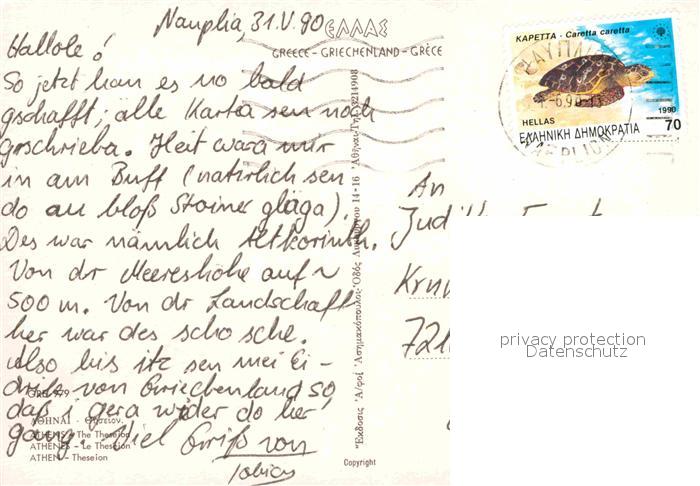 Nauplia, 31.V.90
ΕΛΛΑΣ
GREECE - GRIECHENLAND - GRÈCE
Hallole!
So jetzt han es no bald
gschafft; alle Karta sen noch
gschrieba. Heit wara mir
in am Buff (natirlich sen
do au bloß Stoiner gläga).
Des war nämlich Altkorinth.
Von dr Meereshöhe auf ~
500 m. Von dr Landschaft
her war des scho sche.
Also bis itz sen mei Ei-
drick von Griechenland so,
daß i gera wider do her
gang. Viel Grüß von
Tobias
GRE 979
ΑΘΗΝΑΙ - Θησείον.
ATHENS - The Theseion
ATHENES - Le Theseion
ATHEN - Theseion
Copyright
Ἔκδοσις Ἀ/φοί Ἀσημακόπουλοι - Ὁδός 14-16 Ἀθῆναι Τηλ. 3214908
ΚΑΡΕΤΤΑ - Caretta caretta
HELLAS
1990
ΕΛΛΗΝΙΚΗ ΔΗΜΟΚΡΑΤΙΑ
70
ΝΑΥΠΛΙ
NAFPLION
An
Judith
721
privacy protection
Datenschutz